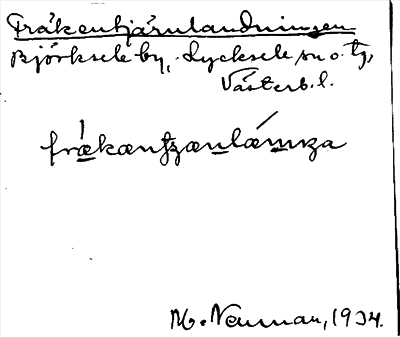 Fräkentjärnlandningen
Björksele by, Lycksele sn o. tg,
Västerb. l.
M. Neuman, 1934.